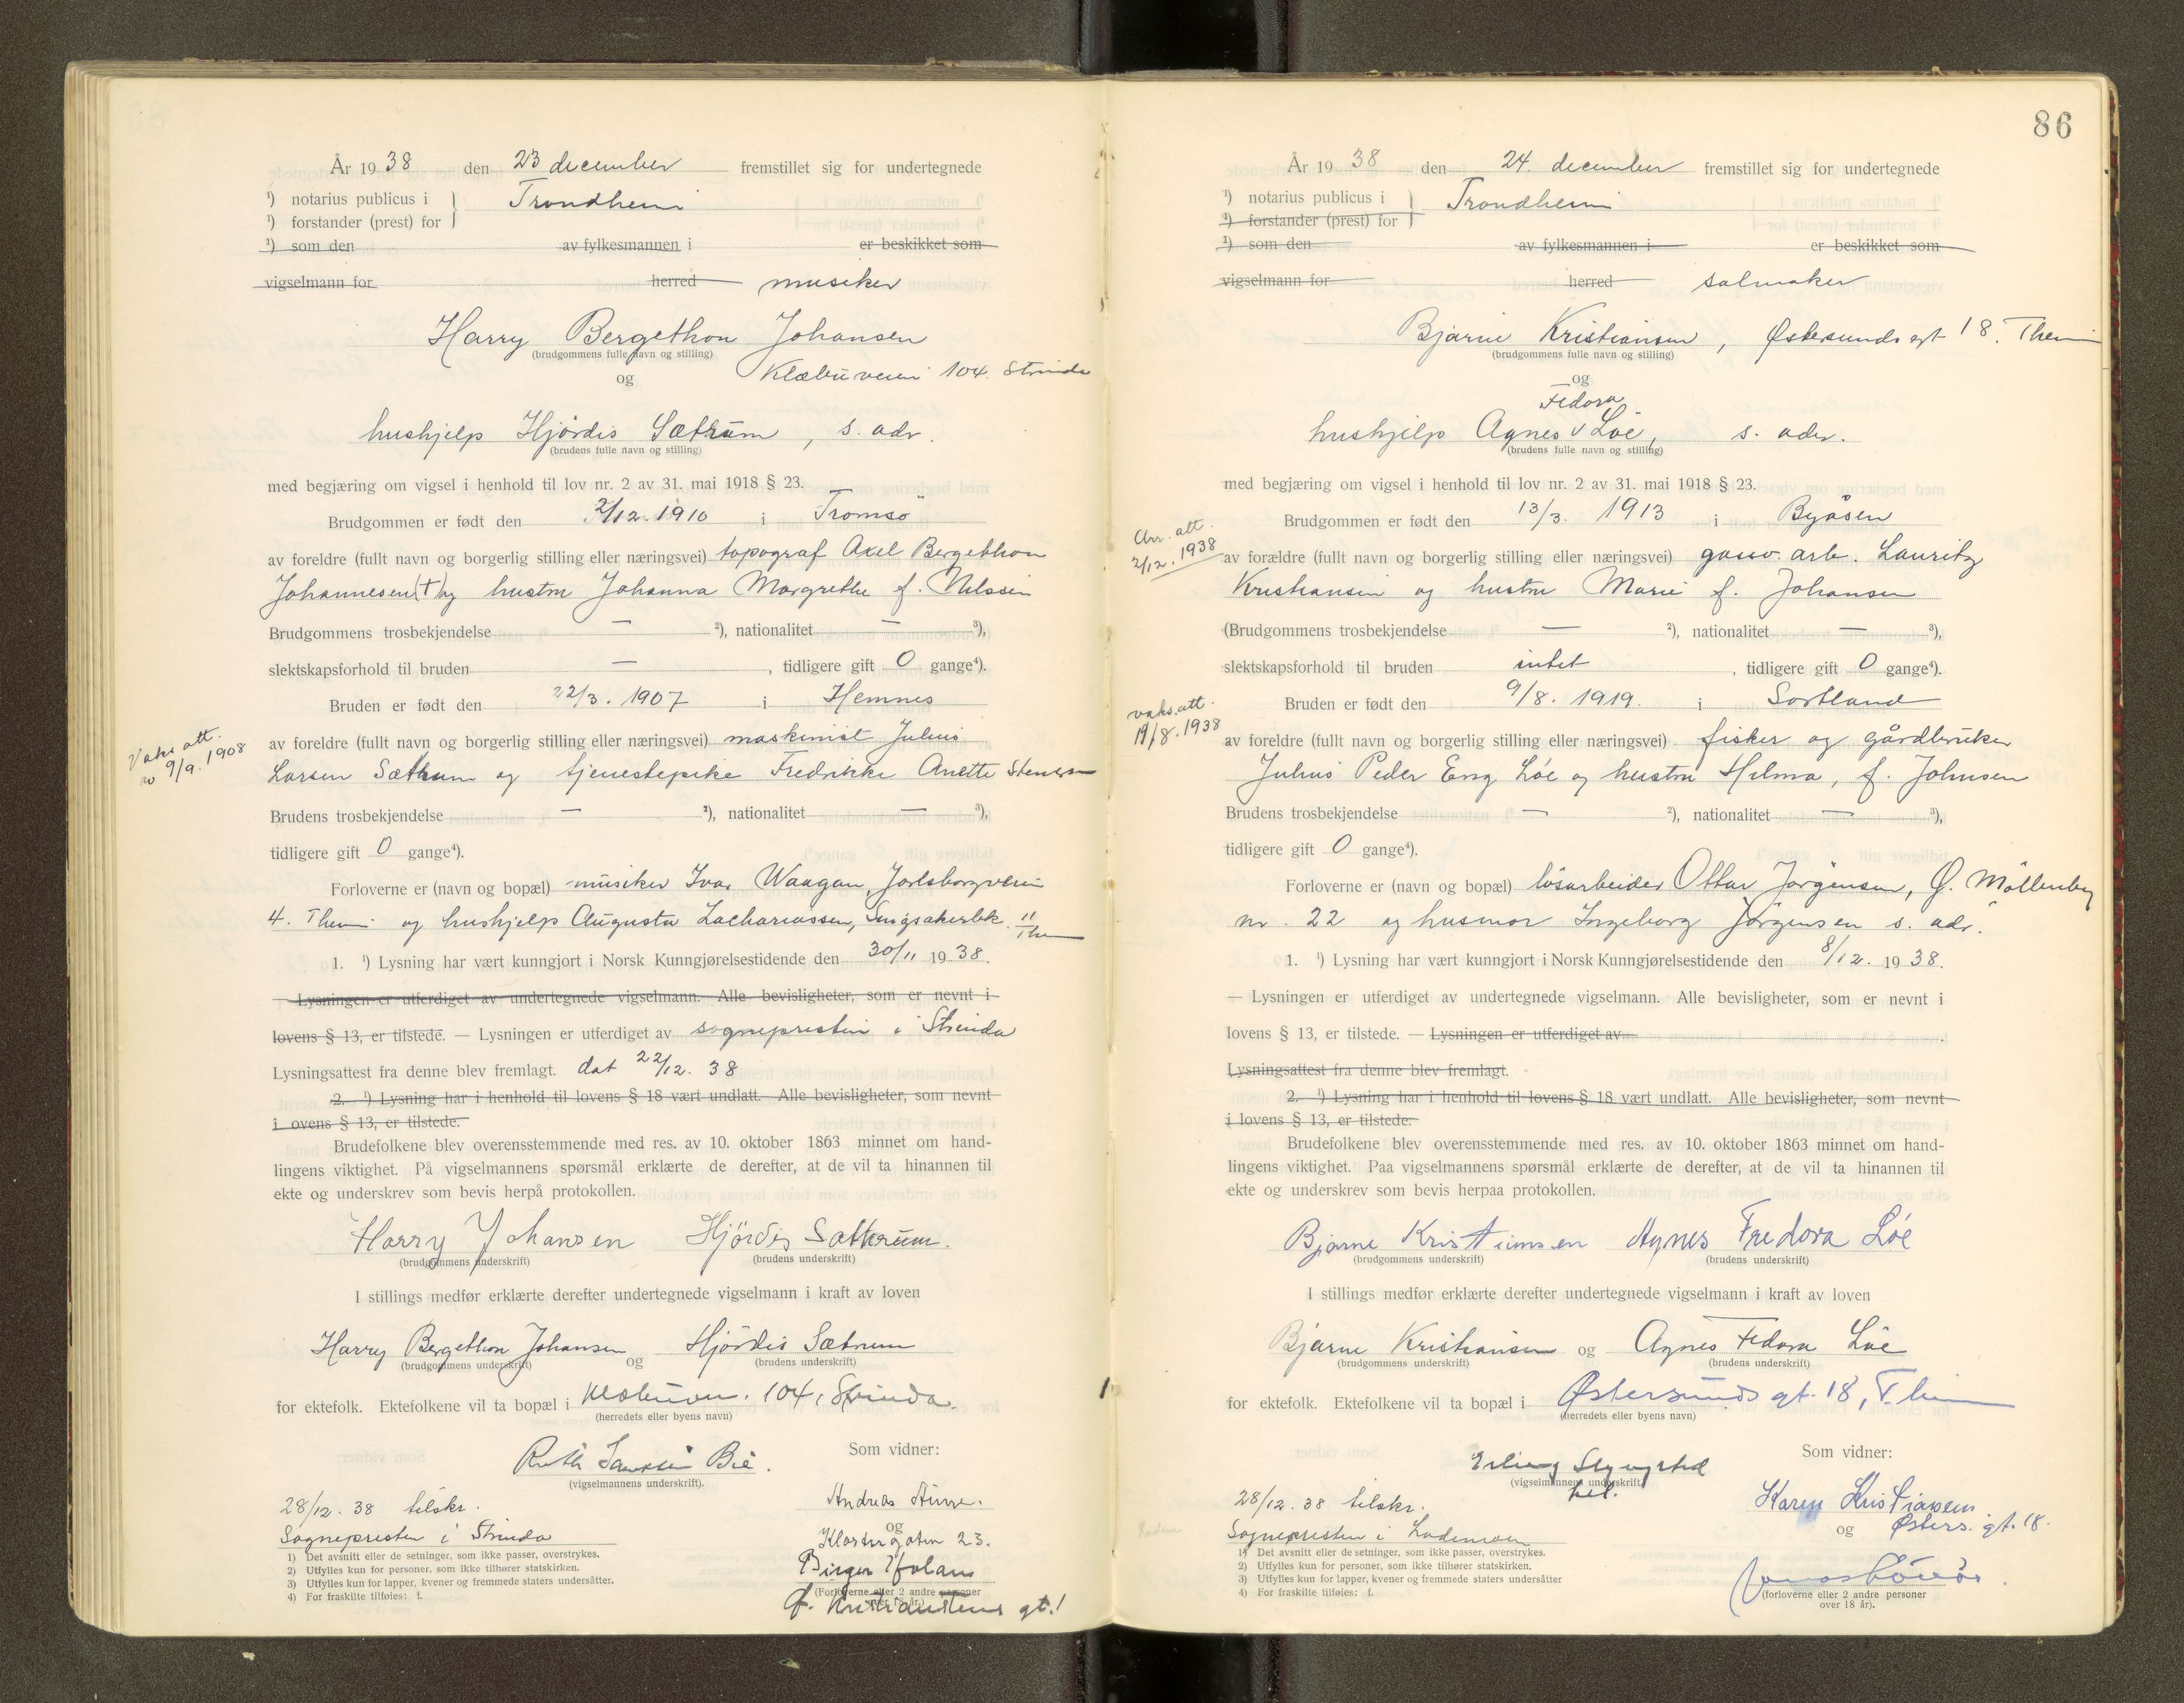 År 1938 den 23 december fremstillet sig for undertegnede
¹) notarius publicus i } Trondheim
¹) forstander (prest) for
¹) som den av fylkesmannen i er beskikket som
vigselmann for herred musiker
Harry Bergethon Johansen
(brudgommens fulle navn og stilling)
og Klæbuveien 104. Strinda
hushjelp Hjördis Sæthrum, s. adr.
(brudens fulle navn og stilling)
med begjæring om vigsel i henhold til lov nr. 2 av 31. mai 1918 § 23.
Brudgommen er født den 2/12. 1910 i Tromsö
av foreldre (fullt navn og borgerlig stilling eller næringsvei) topograf Axel Bergethon
Johannesen (†) og hustru Johanna Margrethe f. Nilssen
Brudgommens trosbekjendelse — ²), nationalitet — ³),
slektskapsforhold til bruden — , tidligere gift 0 gange⁴).
Bruden er født den 22/3. 1907 i Hemnes
Vaks att.
9/9. 1908
av foreldre (fullt navn og borgerlig stilling eller næringsvei) maskinist Julius
Larsen Sæthrum og tjenestepike Fredrikke Anette Stenersen
Brudens trosbekjendelse — ²), nationalitet — ³),
tidligere gift 0 gange⁴).
Forloverne er (navn og bopæl) musiker Ivar Waagan, Jarlsborgveien
4. Them og hushjelp Augusta Zachariassen, Singsakerbk. 11
Thm
1. ¹) Lysning har vært kunngjort i Norsk Kunngjørelsestidende den 30/11 1938.
— Lysningen er utferdiget av undertegnede vigselmann. Alle bevisligheter, som er nevnt i
lovens § 13, er tilstede. — Lysningen er utferdiget av sognepresten i Strinda
Lysningsattest fra denne blev fremlagt. dat 22/12. 38
2. ¹) Lysning har i henhold til lovens § 18 vært undlatt. Alle bevisligheter, som nevnt
i ovens § 13, er tilstede.
Brudefolkene blev overensstemmende med res. av 10. oktober 1863 minnet om hand-
lingens viktighet. På vigselmannens spørsmål erklærte de derefter, at de vil ta hinannen til
ekte og underskrev som bevis herpå protokollen.
Harry Johansen Hjördis Sæthrum.
(brudgommens underskrift) (brudens underskrift)
I stillings medfør erklærte derefter undertegnede vigselmann i kraft av loven
Harry Bergethon Johansen og Hjördis Sætrum
(brudgommens underskrift) (brudens underskrift)
for ektefolk. Ektefolkene vil ta bopæl i Klæbuvn. 104, Strinda.
(herredets eller byens navn)
Som vidner:
Ruth Bie.
(vigselmannens underskrift).
Andreas
28/12. 38 tilskr.
og
Sognepresten i Strinda
Klostergaten 23.
1) Det avsnitt eller de setninger, som ikke passer, overstrykes.
2) Utfylles kun for personer, som ikke tilhører statskirken.
3) Utfylles kun for lapper, kvener og fremmede staters undersåtter.
4) For fraskilte tilføies: f.
Birger
(Forloverne eller 2 andre personer
over 18 år.)
gt. 1
86
År 1938 den 24. december fremstillet sig for undertegnede
¹) notarius publicus i } Trondheim
¹) forstander (prest) for
¹) som den av fylkesmannen i er beskikket som
vigselmann for herred salmaker
Bjarne Kristiansen, Østersunds gt 18. Them
(brudgommens fulle navn og stilling)
og
Fedora
hushjelp Agnes v Löe, s. adr.
(brudens fulle navn og stilling)
med begjæring om vigsel i henhold til lov nr. 2 av 31. mai 1918 § 23.
Brudgommen er født den 13/3. 1913 i Byåsen
Arr. att.
2/12. 1938
av forældre (fullt navn og borgerlig stilling eller næringsvei) gassv. arb. Lauritz
Kristiansen og hustru Marie f. Johansen
(Brudgommens trosbekjendelse — ²), nationalitet — ³),
slektskapsforhold til bruden intet , tidligere gift 0 gange⁴).
Bruden er født den 9/8. 1919. i Sortland
vaks.att.
19/8. 1938
av foreldre (fullt navn og borgerlig stilling eller næringsvei) fisker og gårdbruker
Julius Peder Eng Löe og hustru Hilma, f. Johnsen
Brudens trosbekjendelse — ²), nationalitet — ³),
tidligere gift 0 gange⁴).
Forloverne er (navn og bopæl) lösarbeider Ottar Jörgensen, Ø. Möllenberg
nr. 22 og husmor Ingeborg Jörgensen s. adr.
1. ¹) Lysning har vært kunngjort i Norsk Kunngjørelsestidende den 8/12. 1938.
— Lysningen er utferdiget av undertegnede vigselmann. Alle bevisligheter, som er nevnt i
lovens § 13, er tilstede. — Lysningen er utferdiget av
Lysningsattest fra denne blev fremlagt.
2. ¹) Lysning har i henhold til lovens § 18 vært undlatt. Alle bevisligheter, som nevnt
i lovens § 13, er tilstede.
Brudefolkene blev overensstemmende med res. av 10. oktober 1863 minnet om hand-
lingens viktighet. Paa vigselmannens spørsmål erklærte de derefter, at de vil ta hinannen til
ekte og underskrev som bevis herpaa protokollen.
Bjarne Kristiansen Agnes Fredora Löe
(brudgommens underskrift) (brudens underskrift)
I stillings medfør erklærte derefter undertegnede vigselmann i kraft av loven
Bjarne Kristiansen og Agnes Fedora Löe
(brudgommens underskrift) (brudens underskrift)
for ektefolk. Ektefolkene vil ta bopæl i Østersunds gt. 18, T.heim
(herredets eller byens navn)
Som vidner:
Erling
(vigselmannens underskrift)
28/12. 38 tilskr.
Karen Kristiansen
og Østers. gt. 18.
Sognepresten i Lademoen
1) Det avsnitt eller de setninger, som ikke passer, overstrykes.
2) Utfylles kun for personer, som ikke tilhører statskirken.
3) Utfylles kun for lapper, kvener og fremmede staters undersåtter
4) For fraskilte tilføies: f.
(forloverne eller 2 andre personer
over 18 år).